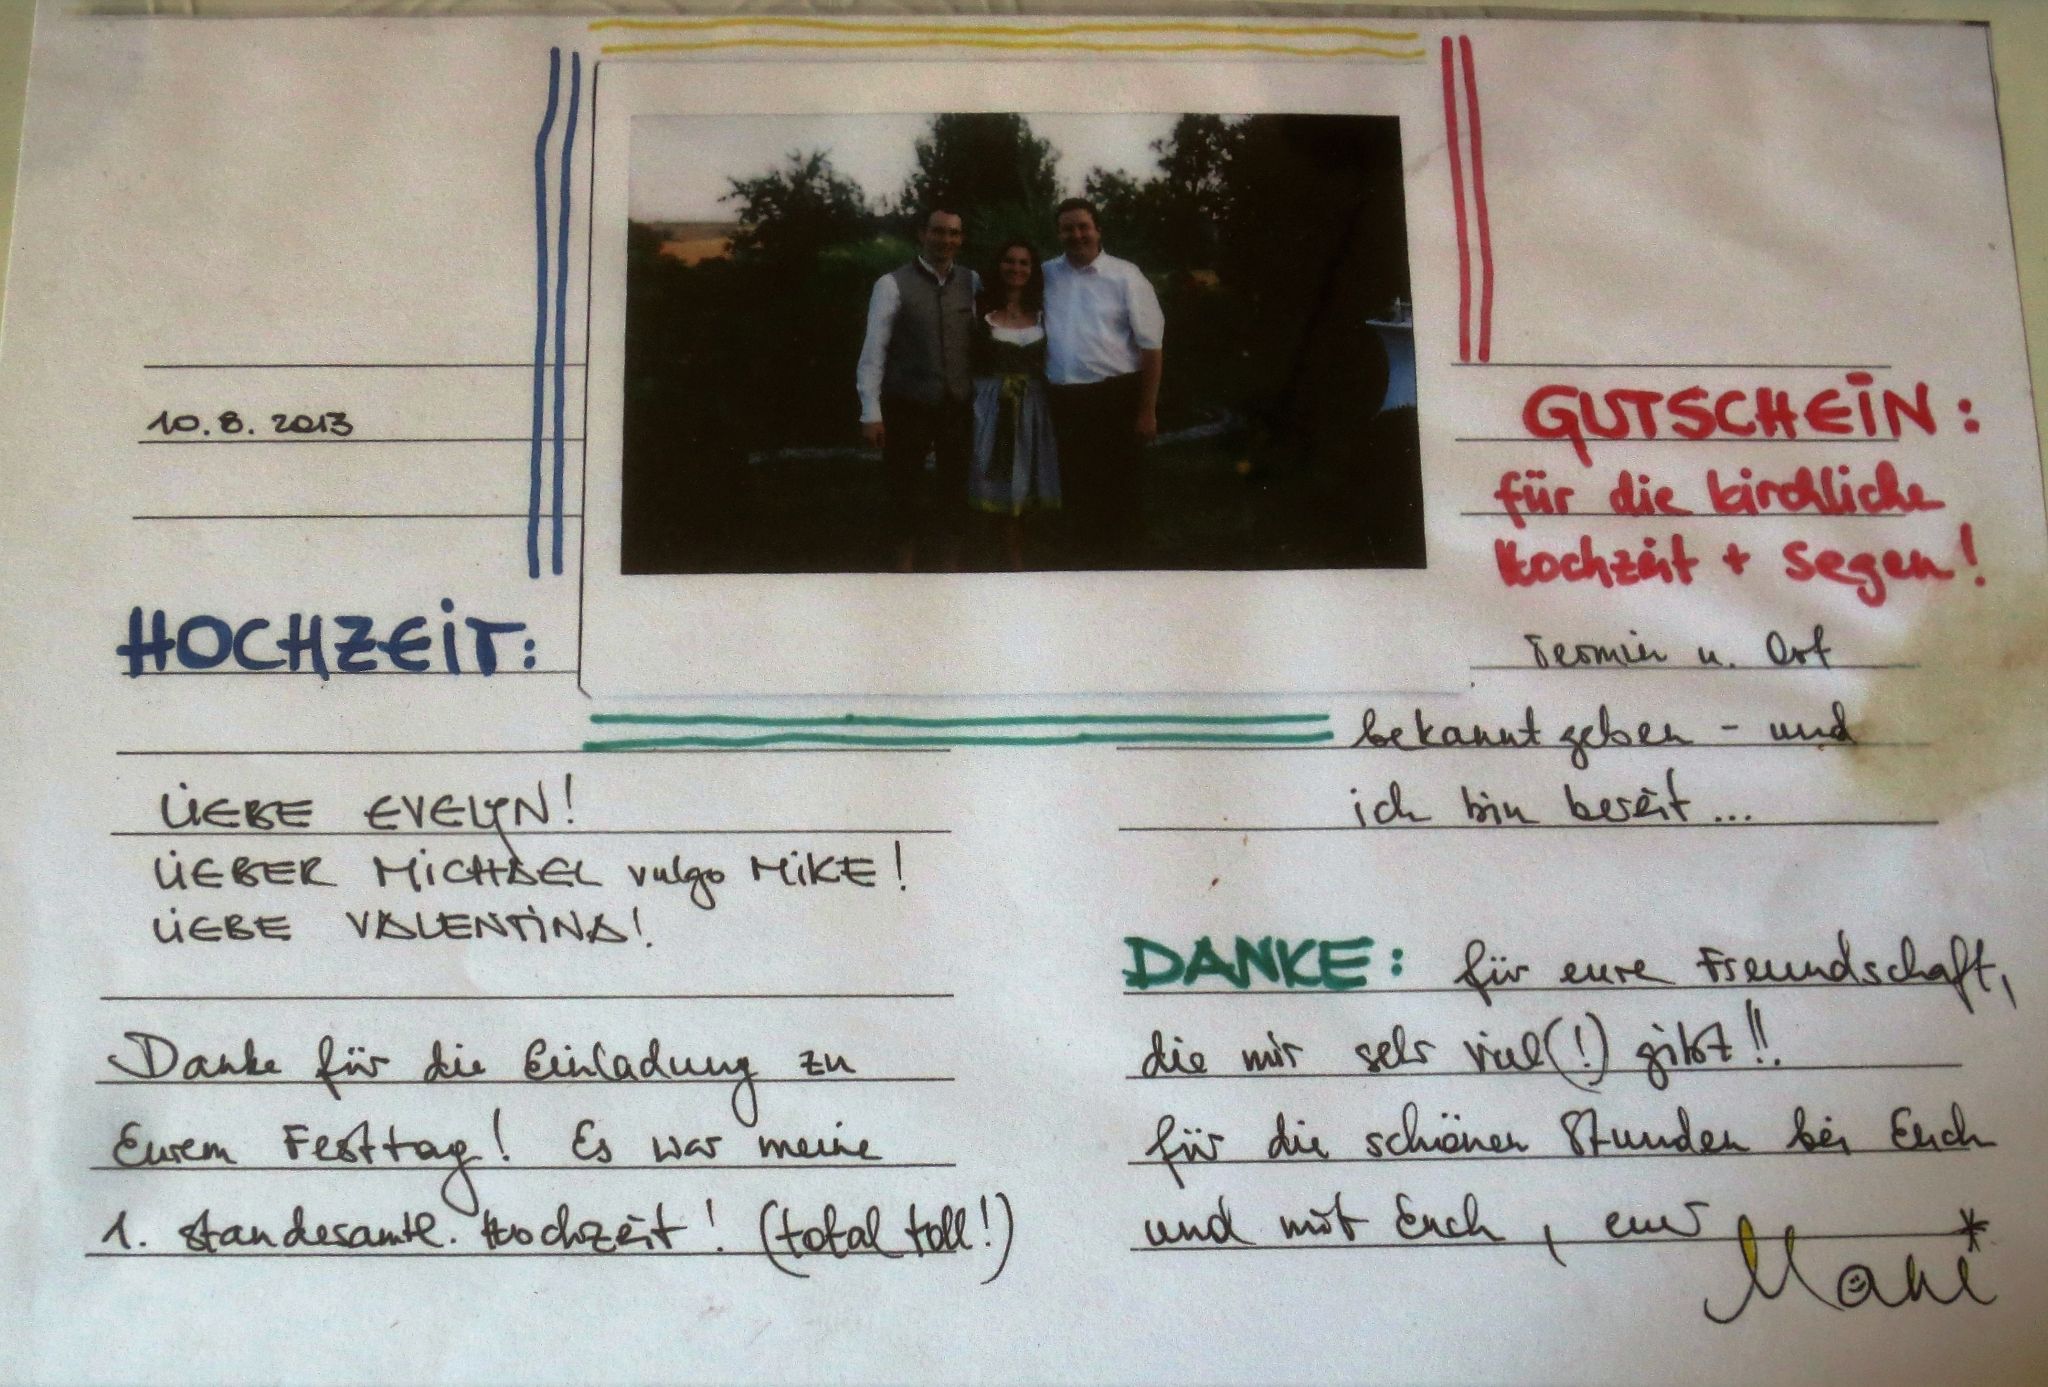 10.8.2013
HOCHZEIT:
LIEBE EVELYN!
LIEBER MICHAEL vulgo MIKE!
LIEBE VALENTINA!
Danke für die Einladung zu
Eurem Festtag! Es war meine
1. standesamtl. Hochzeit! (total toll!)
GUTSCHEIN:
für die kirchliche
Hochzeit + Segen!
Termin u. Ort
bekannt geben - und
ich bin bereit...
DANKE: für eure Freundschaft,
die mir sehr viel(!) gibt!!
für die schönen Stunden bei Euch
und mit Euch, euer